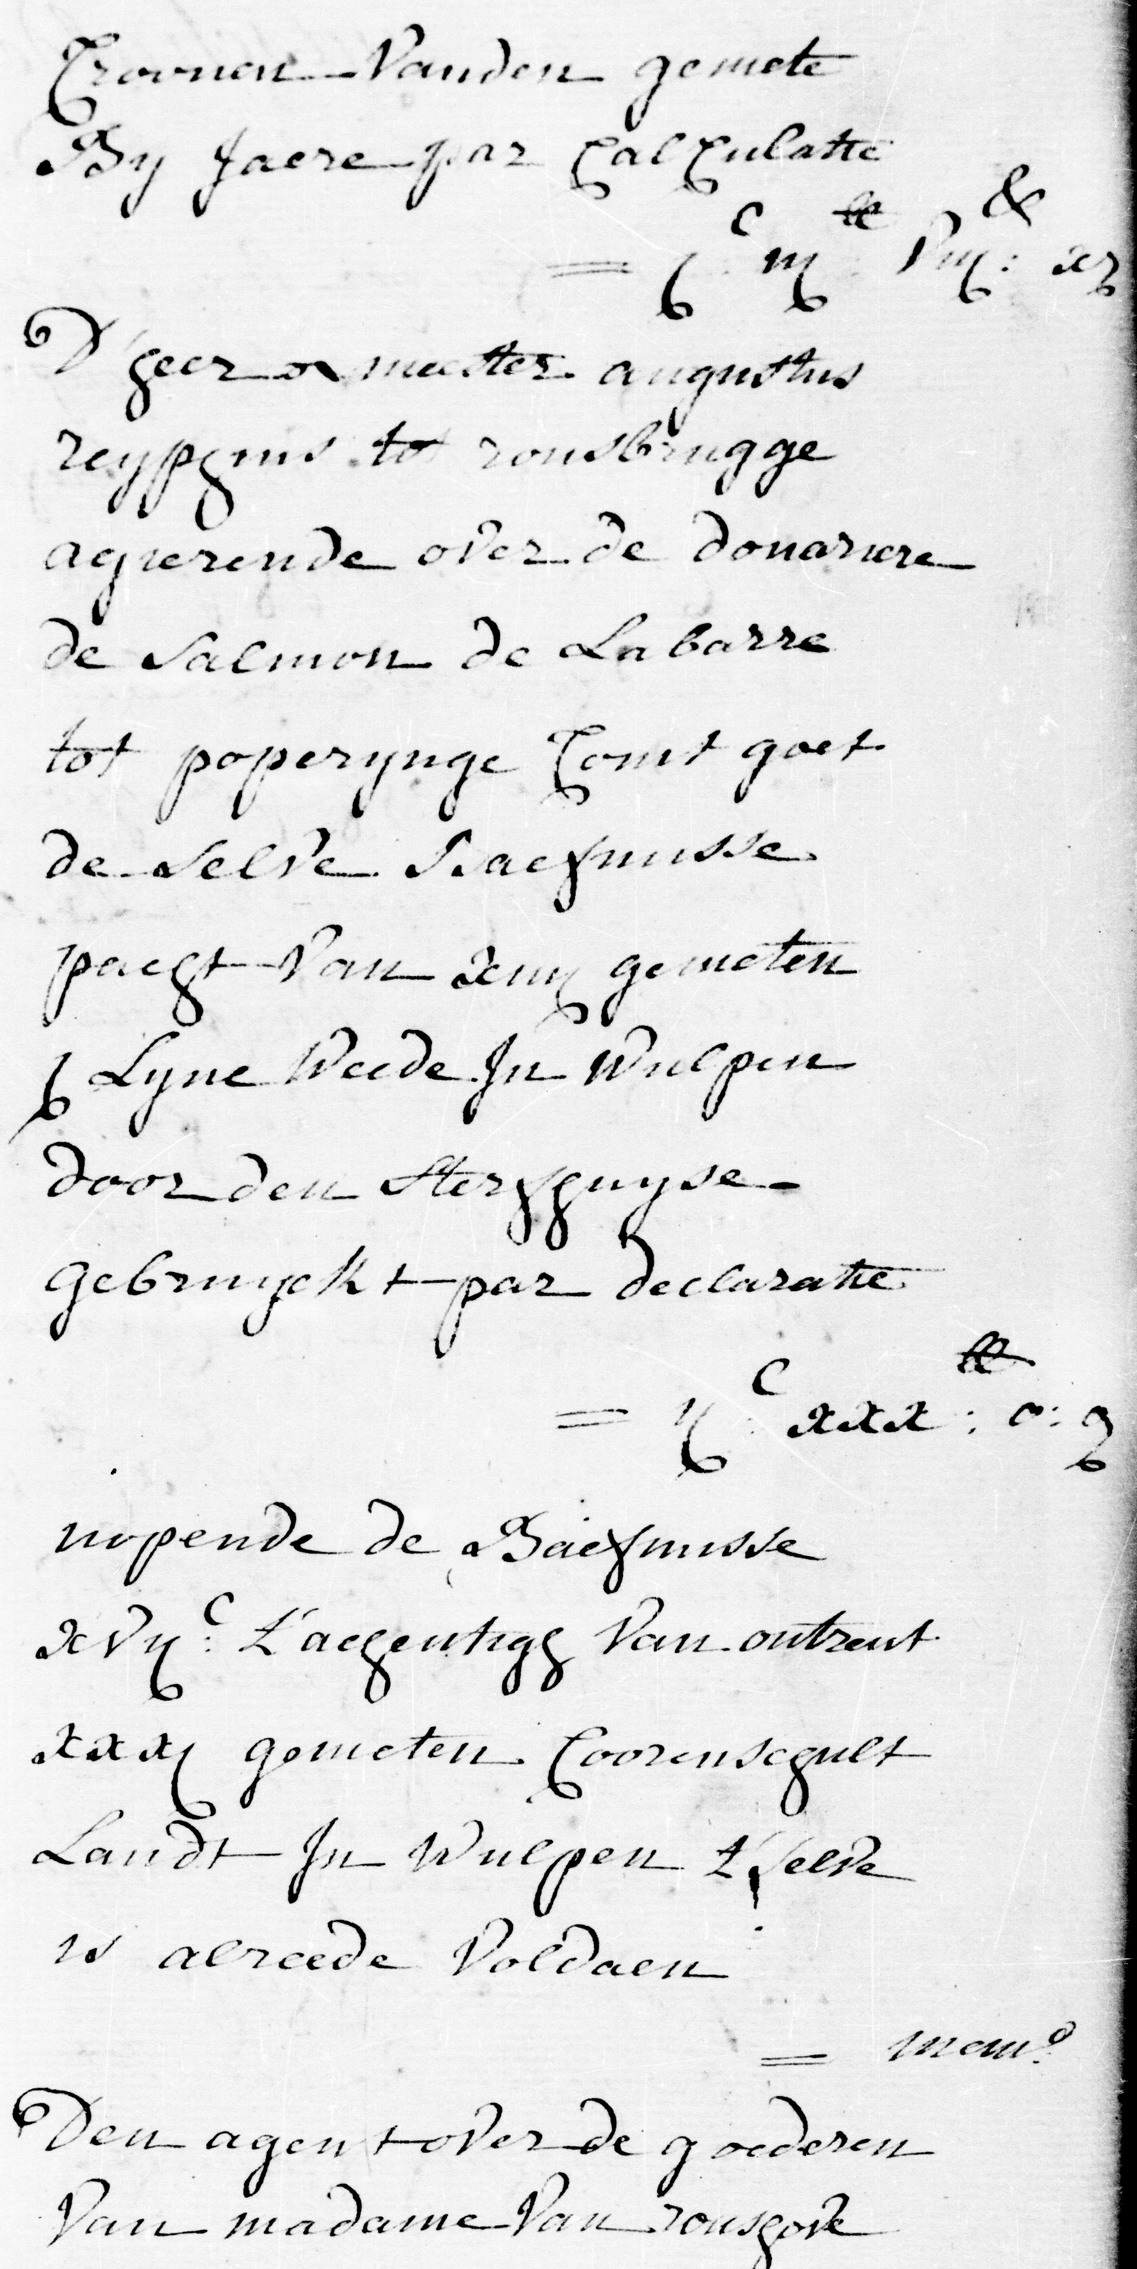 Croonen vanden gemete
By jaere par calculatie
= j C iiij lb viij : xj
D'heer & meester augustus
reyphins tot rousbrugge
agierende over de douariere
de Salmon de Labarre
tot poperynge comt goet
de selve Baefmisse
pacht van xiiij gemeten
j Lyne Weede In Wulpen
door den sterfhuyse
gebruyckt par declaratie
= ij C xxx lb : o : g
nopende de Baefmisse
xvij C t'achentigh van ontrent
xxxj gemeten Coorenschult
Landt In Wulpen t'selve
is alreede voldaen
= mem.o
Den agent over de goederen
van madame van roushove